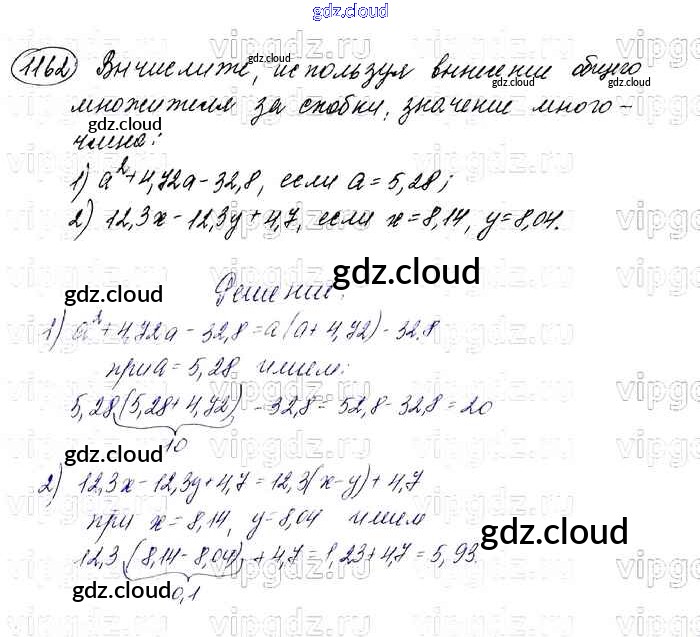 gdz.cloud
1162 Вычислите, используя вынесение общего
множителя за скобки, значение много-
члена:
1) a²+4,72a-32,8, если a=5,28;
2) 12,3x-12,3y+4,7, если x=8,14, y=8,04.
Решение:
1) a²+4,72a-32,8=a(a+4,72)-32,8
при a=5,28 имеем:
5,28(5,28+4,72)-32,8=52,8-32,8=20
10
2) 12,3x-12,3y+4,7=12,3(x-y)+4,7
при x=8,14, y=8,04 имеем
12,3(8,14-8,04)+4,7=1,23+4,7=5,93.
0,1